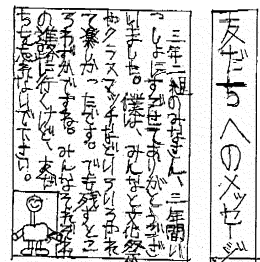 友だちへのメッセージ
三年二組のみなさん、三年間い
っしょにすごせてありがとうござ
いました。僕は、みんなと文化祭
やクラスマッチなど
て楽しかったです。でも残すとこ
ろわずかですね。みんなそれぞれ
の進路に行くけど、友だ
ちを忘れないで下さい。